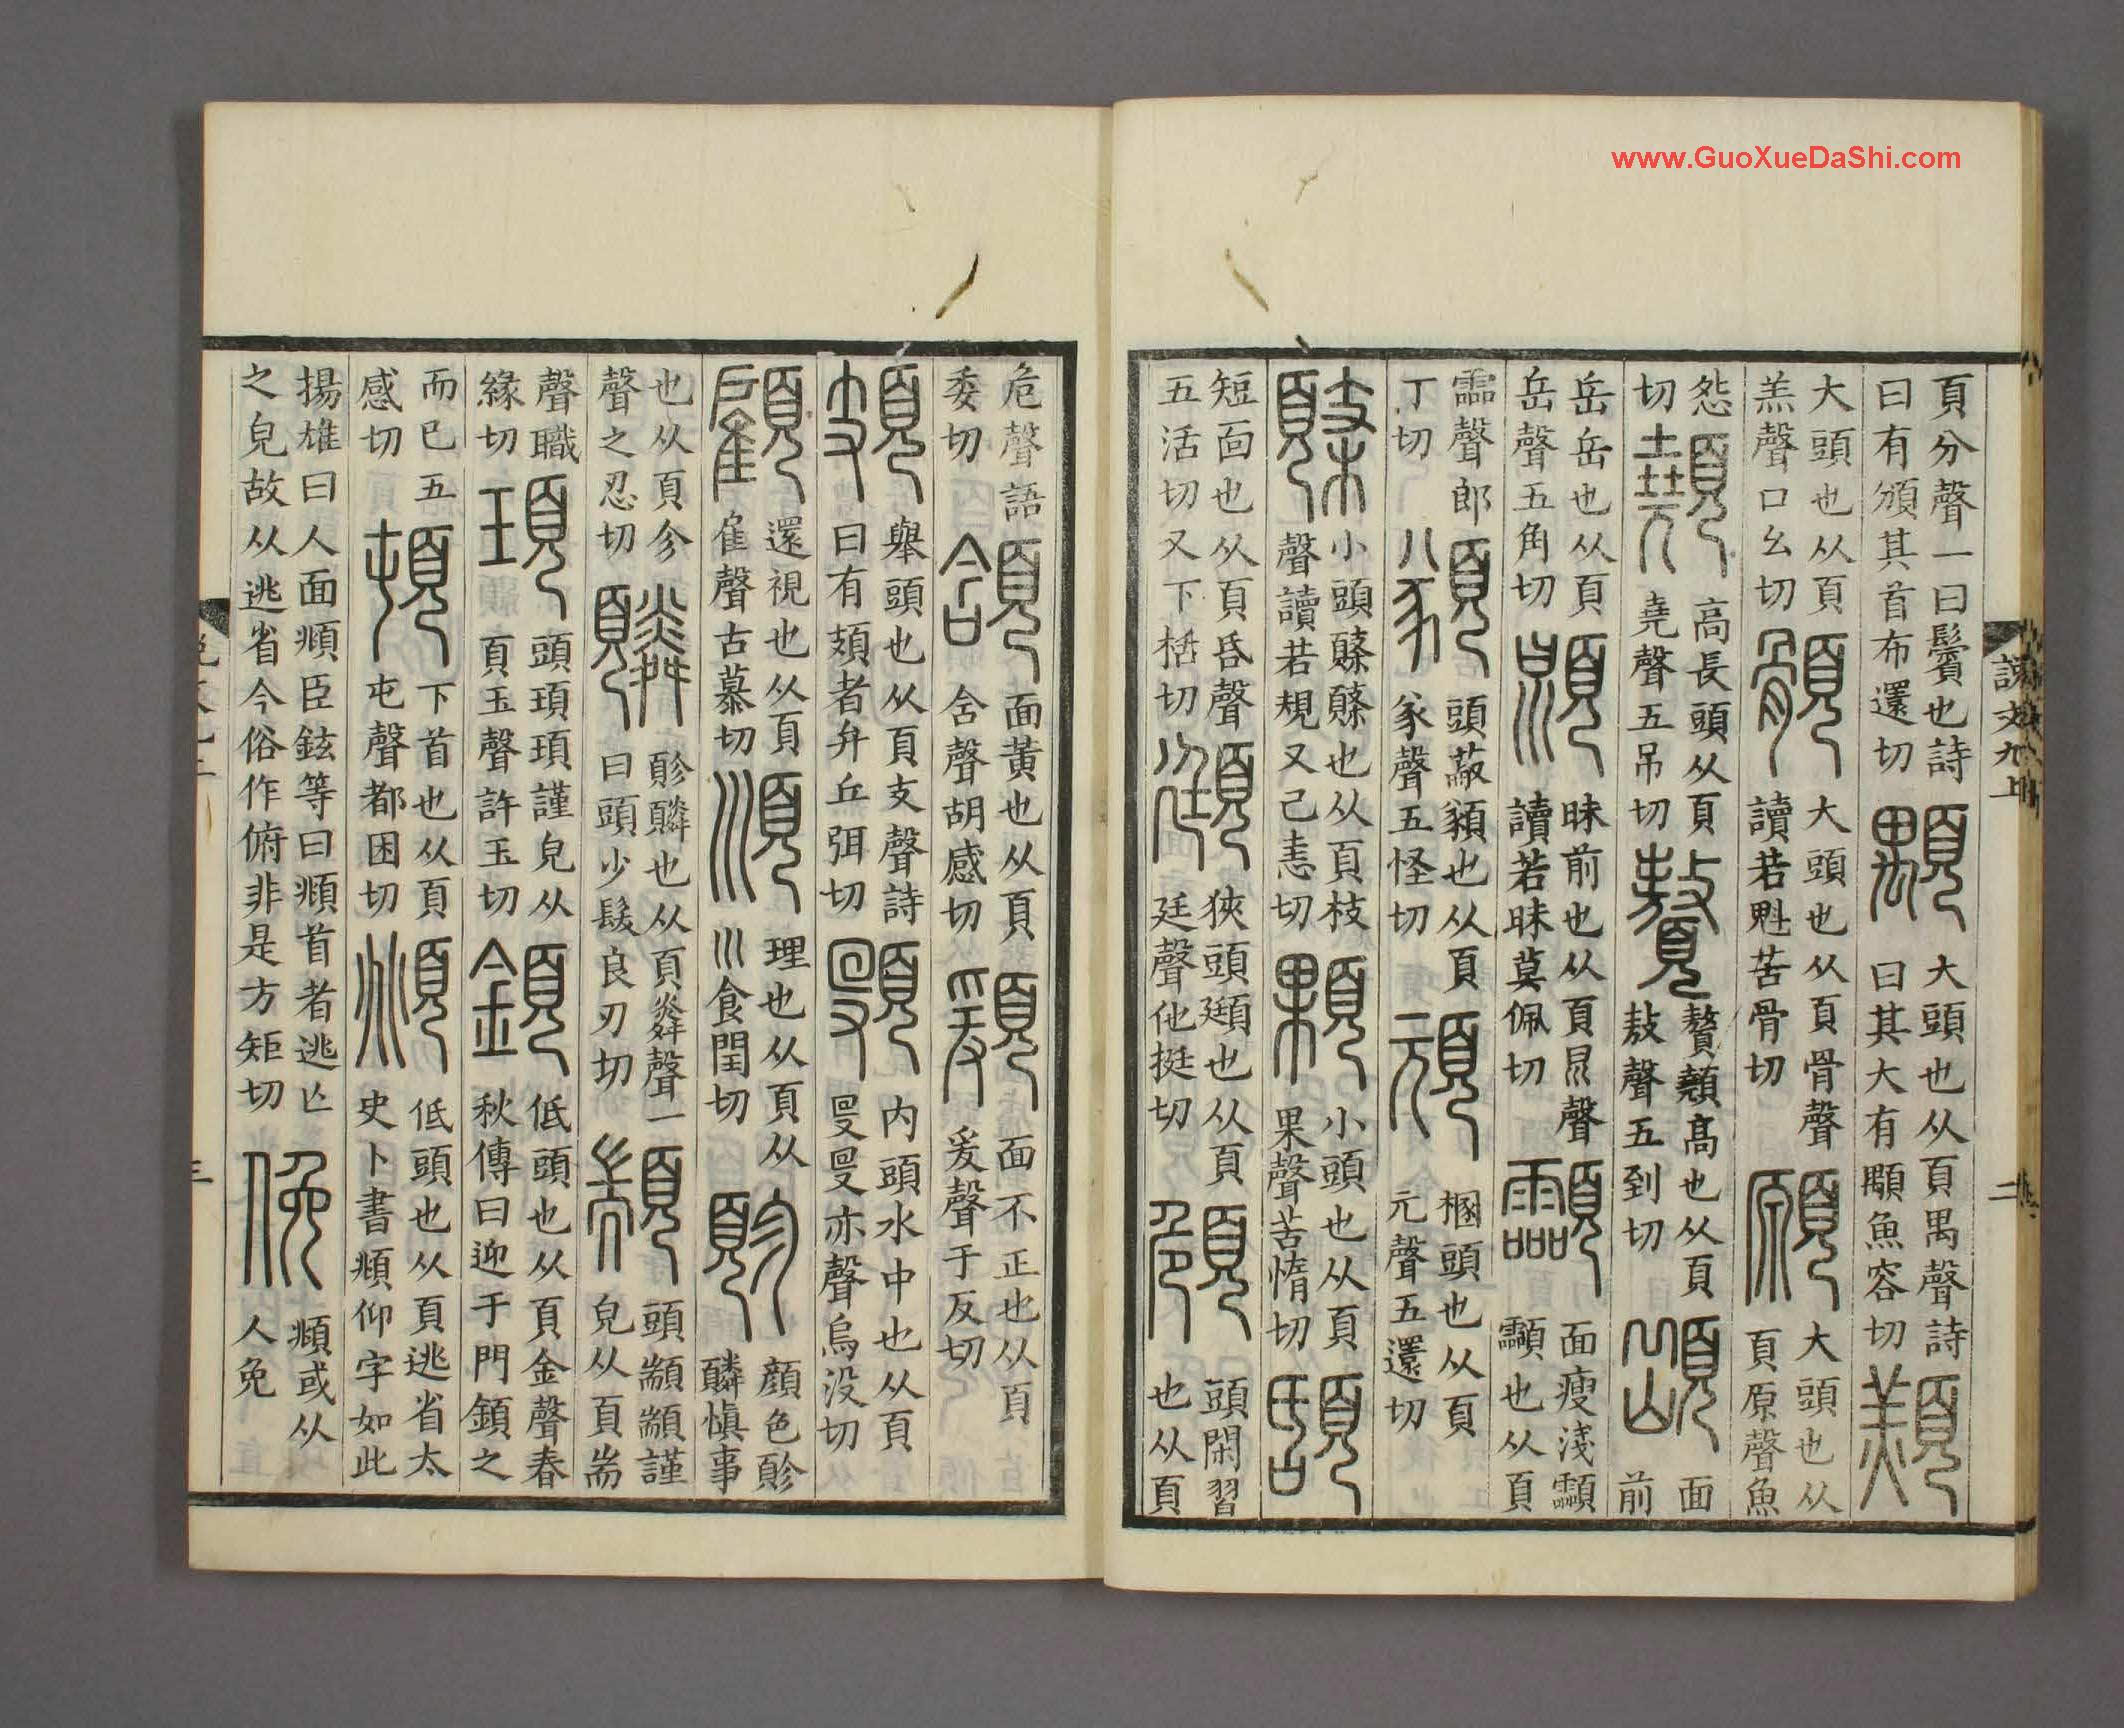 頁分聲一曰鬢也詩曰有頒其首布還切 顒 大頭也从頁禺聲詩曰其大有顒魚容切
大頭也从頁羔聲口幺切 顝 大頭也从頁骨聲讀若魁苦骨切 願 大頭也从頁原聲魚
怨切 顤 高長頭从頁堯聲五吊切 䫨 䫨顤高也从頁敖聲五到切 面前
岳岳也从頁岳聲五角切 昧前也从頁㫚聲讀若昧莫佩切 面瘦淺也从頁
霝聲郎丁切 顡 頭蔽顡也从頁㒸聲五怪切 頑 梱頭也从頁元聲五還切
䫌 小頭䫌䫌也从頁枝聲讀若規又己恚切 顆 小頭也从頁果聲苦惰切 頢
短面也从頁昏聲五活切又下栝切 頲 狹頭頲也从頁廷聲他挺切 頠 頭閑習也从頁
說文九上
二
危聲語委切 頜 面黃也从頁含聲胡感切 面不正也从頁爰聲于反切
頍 舉頭也从頁支聲詩曰有頍者弁丘弭切 頞 内頭水中也从頁𠬸𠬸亦聲烏没切
顧 還視也从頁雇聲古慕切 順 理也从頁从巛食閏切 㐱頁 顏色㐱頁䫰愼事
也从頁㐱聲之忍切 䫰 㐱頁䫰也从頁粦聲一曰頭少髮良刃切 顓 頭顓顓謹皃从頁耑
聲職緣切 頊 頭頊頊謹皃从頁玉聲許玉切 顉 低頭也从頁金聲春秋傳曰迎于門顉之
而已五感切 頓 下首也从頁屯聲都困切 頫 低頭也从頁逃省太史卜書頫仰字如此
揚雄曰人面頫臣鉉等曰頫首者逃亾之皃故从逃省今俗作俯非是方矩切 俛 頫或从人免
三
www.GuoXueDaShi.com